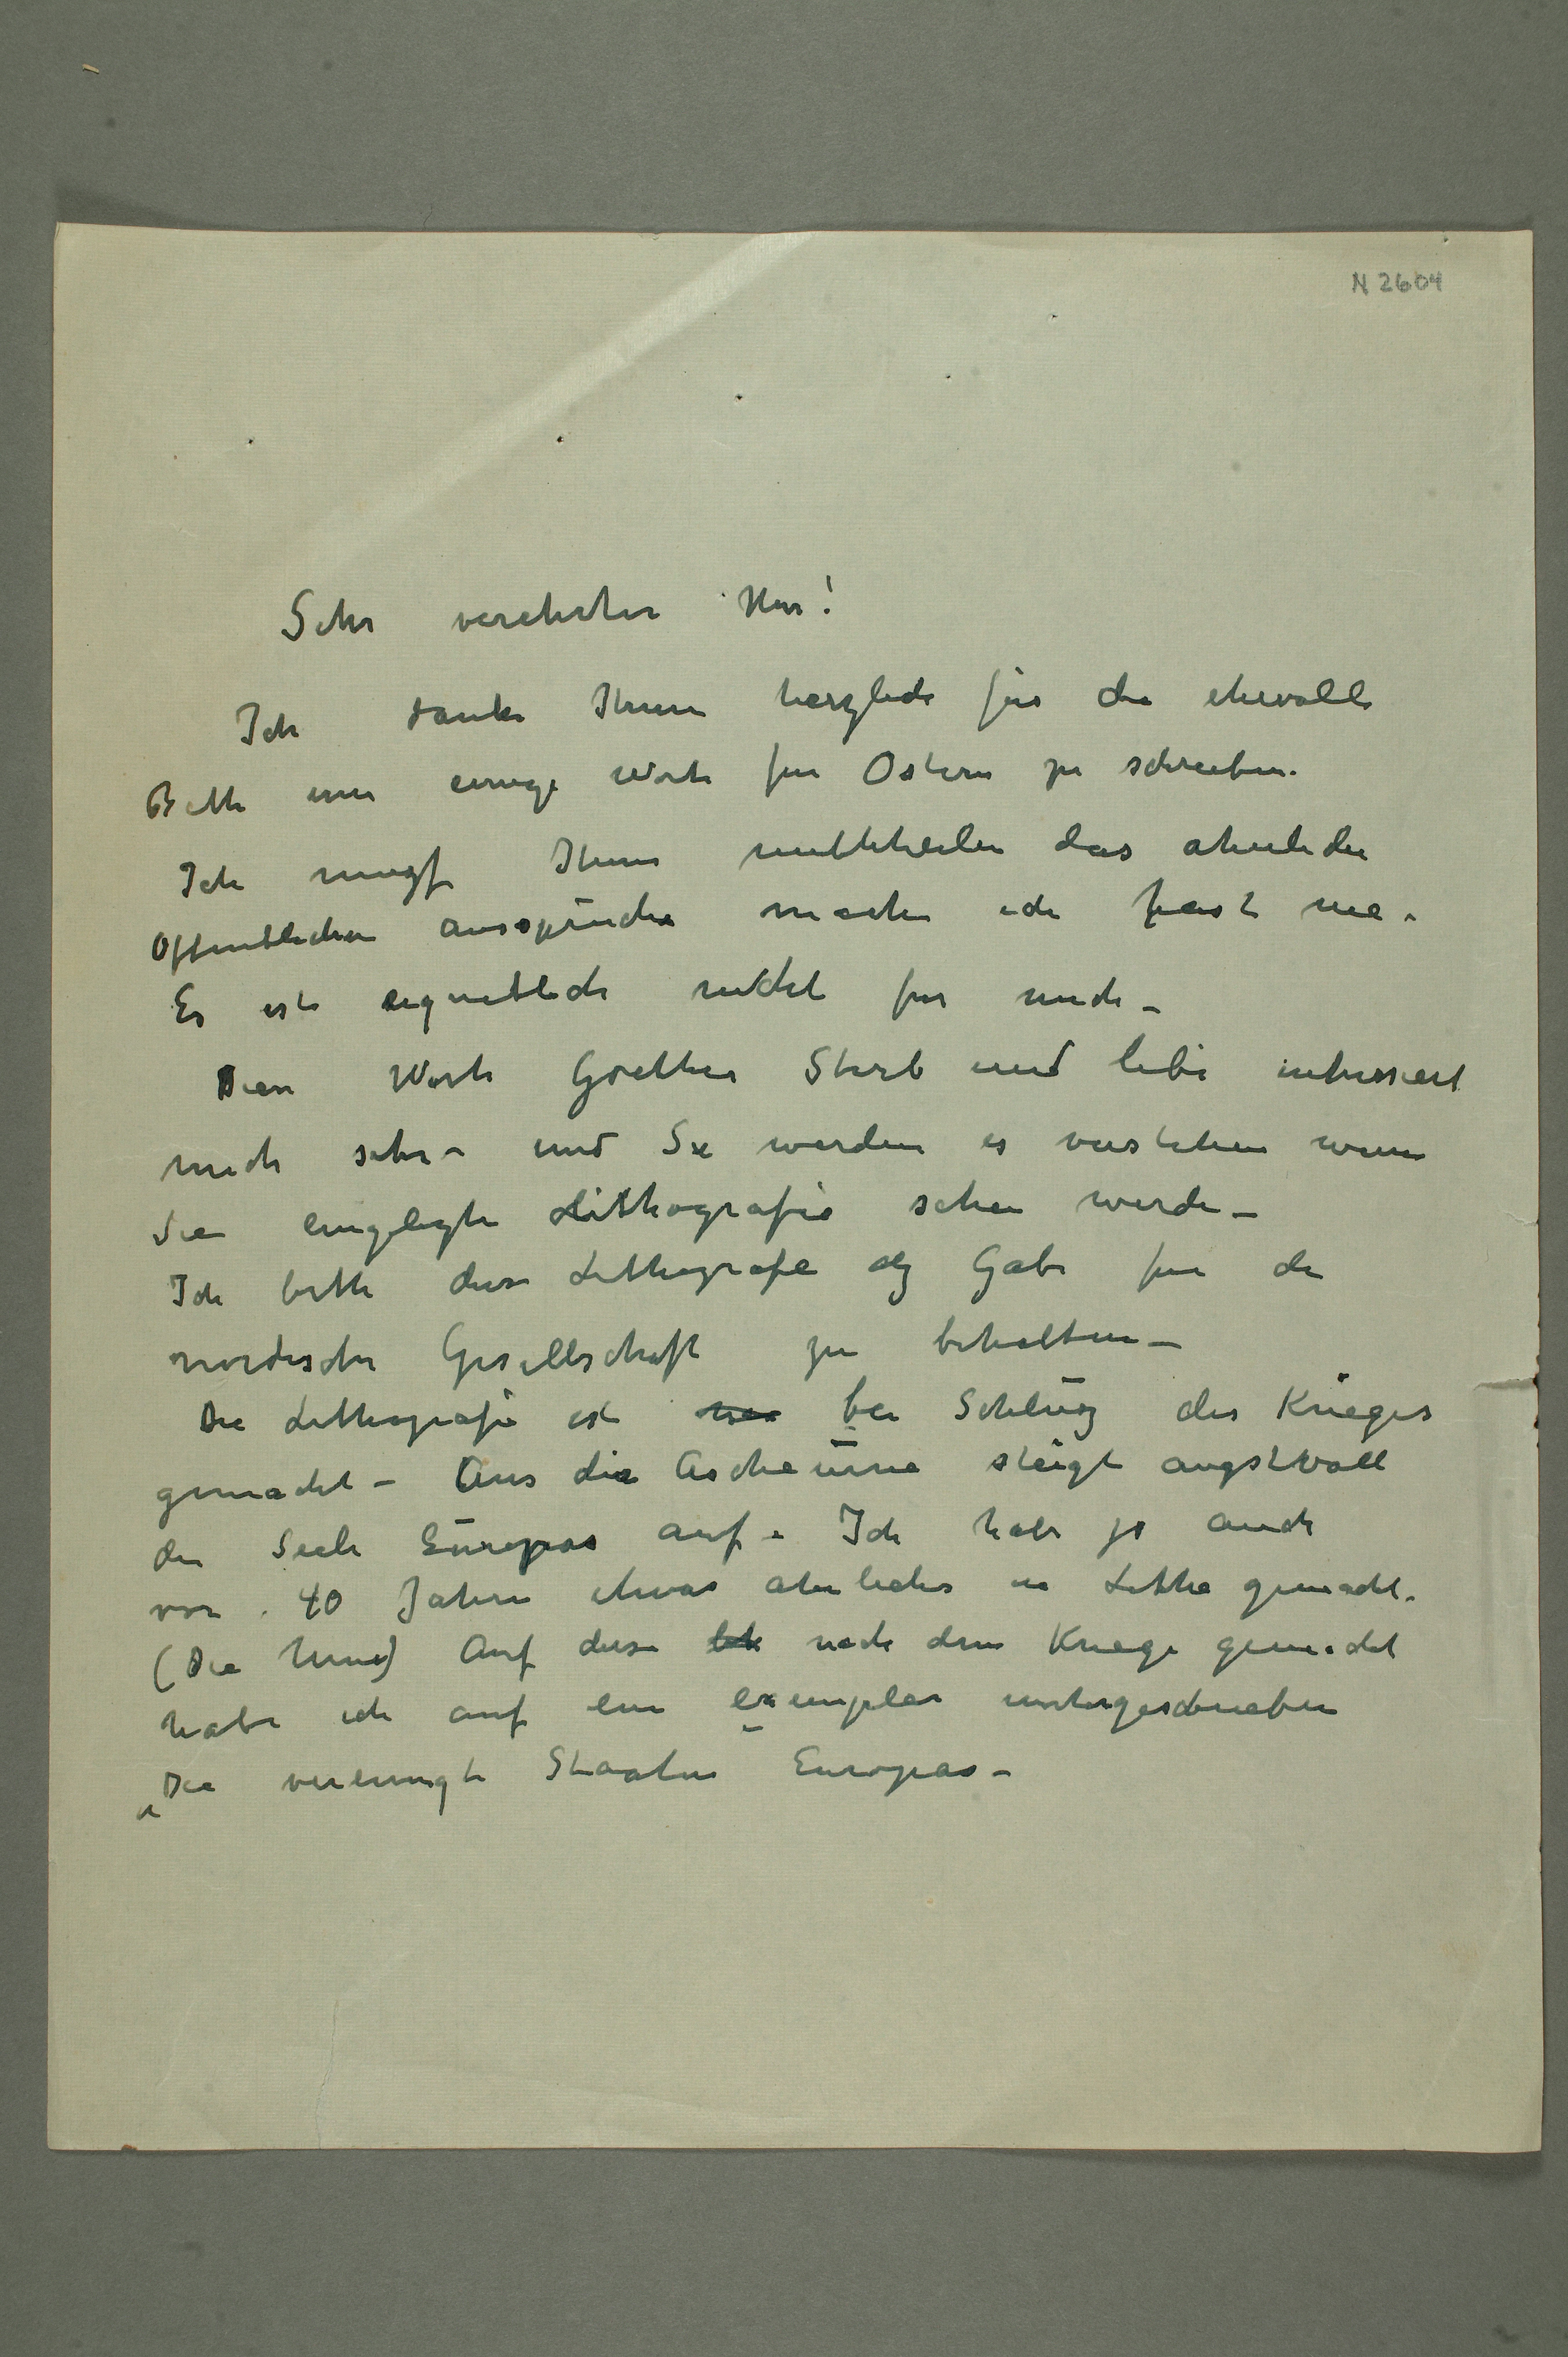 N 2604
Sehr verehrter Herr!
Ich danke Ihnen herzlich für die ehrevolle
Bitte um einige Worte für Ostern zu schreiben.
Ich muss Ihnen mittheilen das ähnliche
Öffentlichen aussprüche mache ich fast nie.
Es ist eigentlich nicht für mich –
Diese Worte Goethes Sterb und lebe interssiert
mich sehr – und Sie werden es verstehen wenn
Sie eingelegte Lithografie sehen werde –
Ich bitte diese Lithografie als Gabe für die
nordische Gesellschaft zu behalten –
Die Lithografie ist bei Schlusz des Krieges
gemacht – Aus die Ascheurne steigt angstvoll
die Seele Europas auf – Ich habe ja auch
vor 40 Jahren etwas ähnliches in Litho gemacht.
(Die Urne) Auf diese nach dem Kriege gemacht
habe ich auf ein exemplar untergeschrieben
„Die vereinigte Staaten Europas –